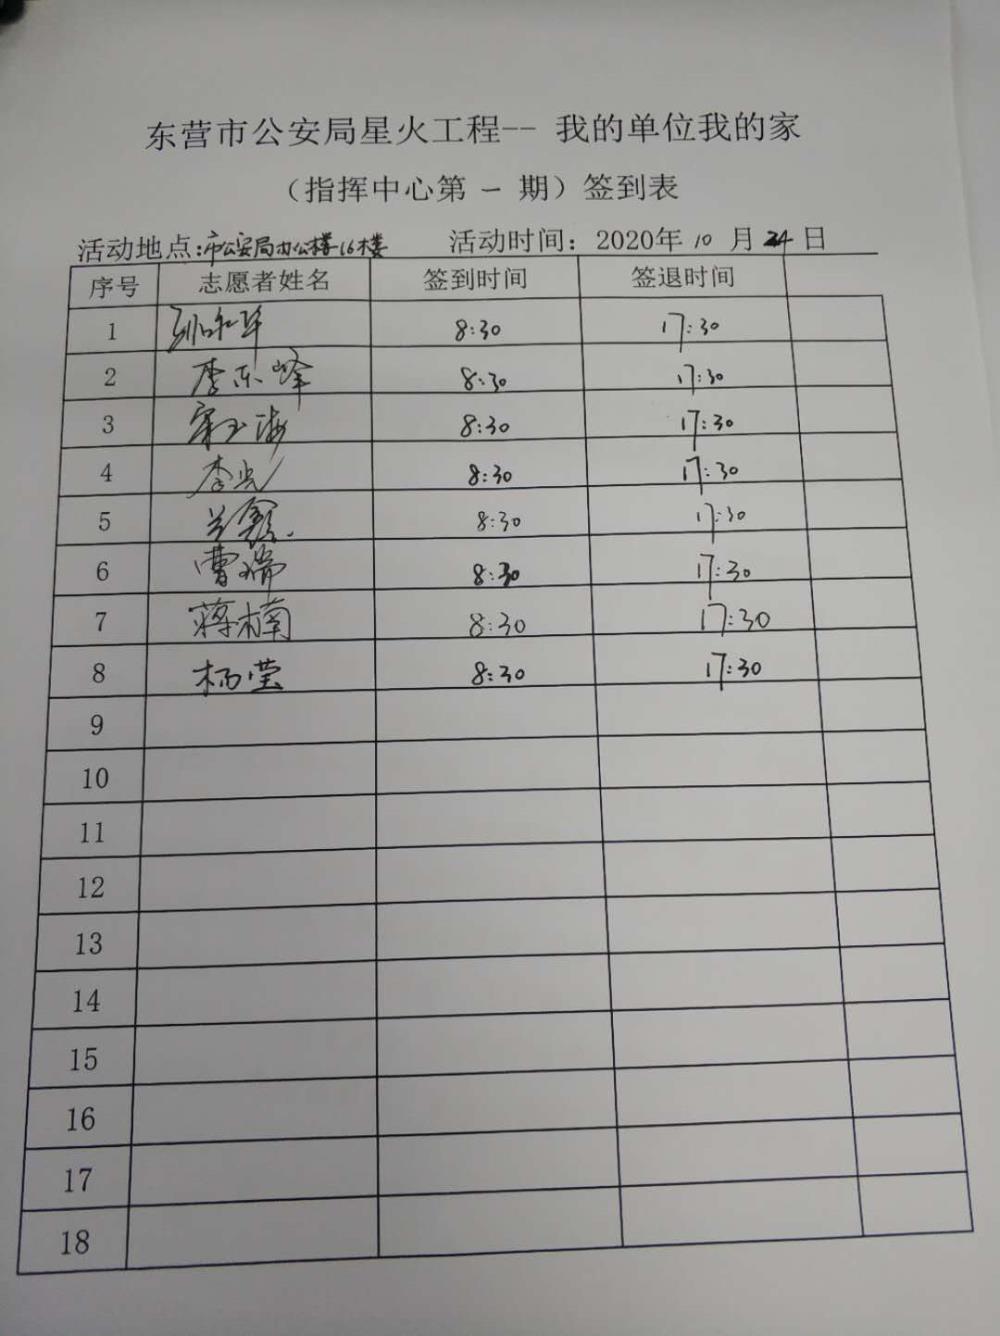 东营市公安局星火工程-- 我的单位我的家
（指挥中心第 一 期）签到表
活动地点:市公安局办公楼16楼 活动时间: 2020年 10 月 24 日
序号 志愿者姓名 签到时间 签退时间
1 8:30 17:30
2 李东峰 8:30 17:30
3 宋玉海 8:30 17:30
4 李光 8:30 17:30
5 8:30 17:30
6 曹瑞 8:30 17:30
7 蒋楠 8:30 17:30
8 杨莹 8:30 17:30
9
10
11
12
13
14
15
16
17
18